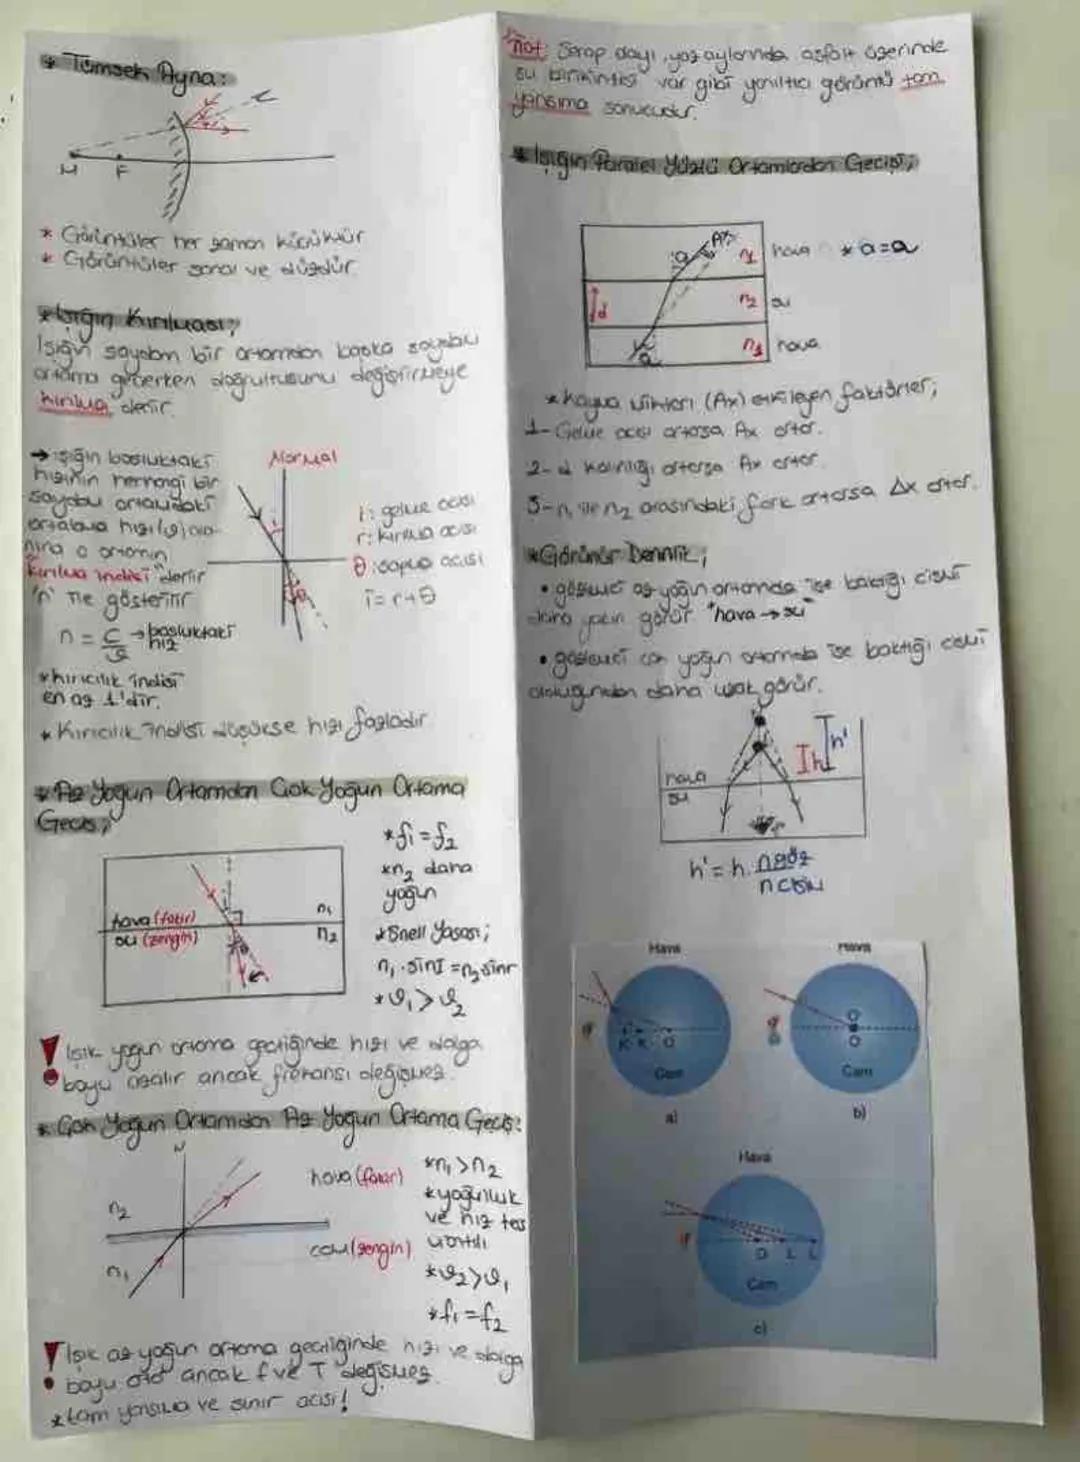 * Tümsek Ayna:
M F
* Görüntüler her zaman küçüktür
* Görüntüler sanal ve düzdür.
* Işığın Kırılması;
Işığın saydam bir ortamdan başka saydam
ortama geçerken doğrultusunu değiştirmeye
kırılma denir.
→ ışığın boşluktaki
hızının herhangi bir
saydam ortamdaki
ortalama hızı(ϑ) ora-
nına o ortamın
"kırılma indisi" denir
"n" ile gösterilir
n = c/ϑ → boşluktaki hız
* kırıcılık indisi
en az 1'dir.
* Kırıcılık indisi düşükse hızı fazladır
Normal
i
θ
i: gelme açısı
r: kırılma açısı
θ: sapma açısı
i = r + θ
* Az Yoğun Ortamdan Çok Yoğun Ortama
Geçiş;
hava (fakir) n₁
su (zengin) n₂
* f₁ = f₂
* n₂ daha
yoğun
* Snell Yasası;
n₁ . sinI = n₂ sinr
* ϑ₁ > ϑ₂
! Işık yoğun ortama geçtiğinde hızı ve dalga
boyu azalır ancak frekansı değişmez.
* Çok Yoğun Ortamdan Az Yoğun Ortama Geçiş:
N
n₂
n₁
hava (fakir)
cam (zengin)
* n₁ > n₂
* yoğunluk
ve hız ters
orantılı
* ϑ₂ > ϑ₁
* f₁ = f₂
! Işık az yoğun ortama geçtiğinde hızı ve dalga
boyu artar ancak f ve T değişmez.
* tam yansıma ve sınır açısı!
not: Serap olayı, yaz aylarında asfalt üzerinde
su birikintisi var gibi yanıltıcı görüntü tam
yansıma sonucudur.
* Işığın Paralel Yüzlü Ortamlardan Geçişi;
a Δx n₁ hava * a=a
d n₂ su
a n₁ hava
* kayma miktarı (Δx) etkileyen faktörler;
1- Gelme açısı artarsa Δx artar.
2- d kalınlığı artarsa Δx artar.
3- n₁ ile n₂ arasındaki fark artarsa Δx artar.
* Görünür Derinlik;
• gözlemci az yoğun ortamda ise baktığı cismi
daha yakın görür "hava → su"
• gözlemci çok yoğun ortamda ise baktığı cismi
olduğundan daha uzak görür.
h h'
hava
su
h' = h. ngöz / ncisim
Hava
Cam
a)
Hava
Cam
b)
Hava
Cam
c)